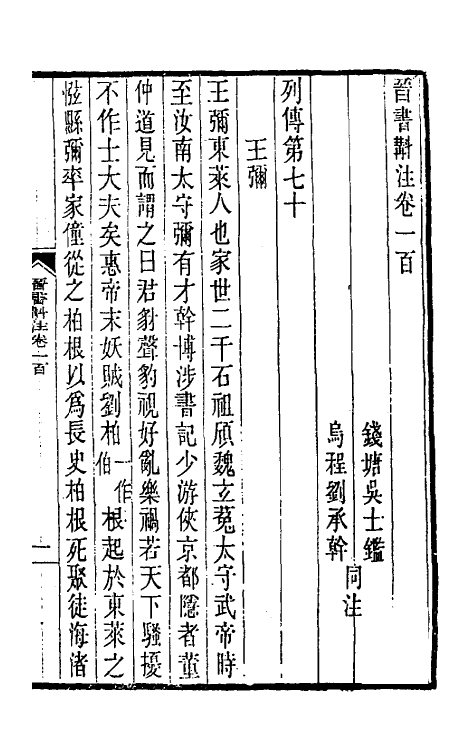 晉書斠注卷一百
錢塘吳士鑑
烏程劉承幹
同注
列傳第七十
王彌
王彌東萊人也家世二千石祖頎魏玄菟太守武帝時
至汝南太守彌有才幹博涉書記少游俠京都隱者董
仲道見而謂之曰君豺聲豹視好亂樂禍若天下騷擾
不作士大夫矣惠帝末妖賊劉柏一作伯根起於東萊之
惤縣彌率家僮從之柏根以爲長史柏根死聚徒海渚
晉書斠注卷一百
一